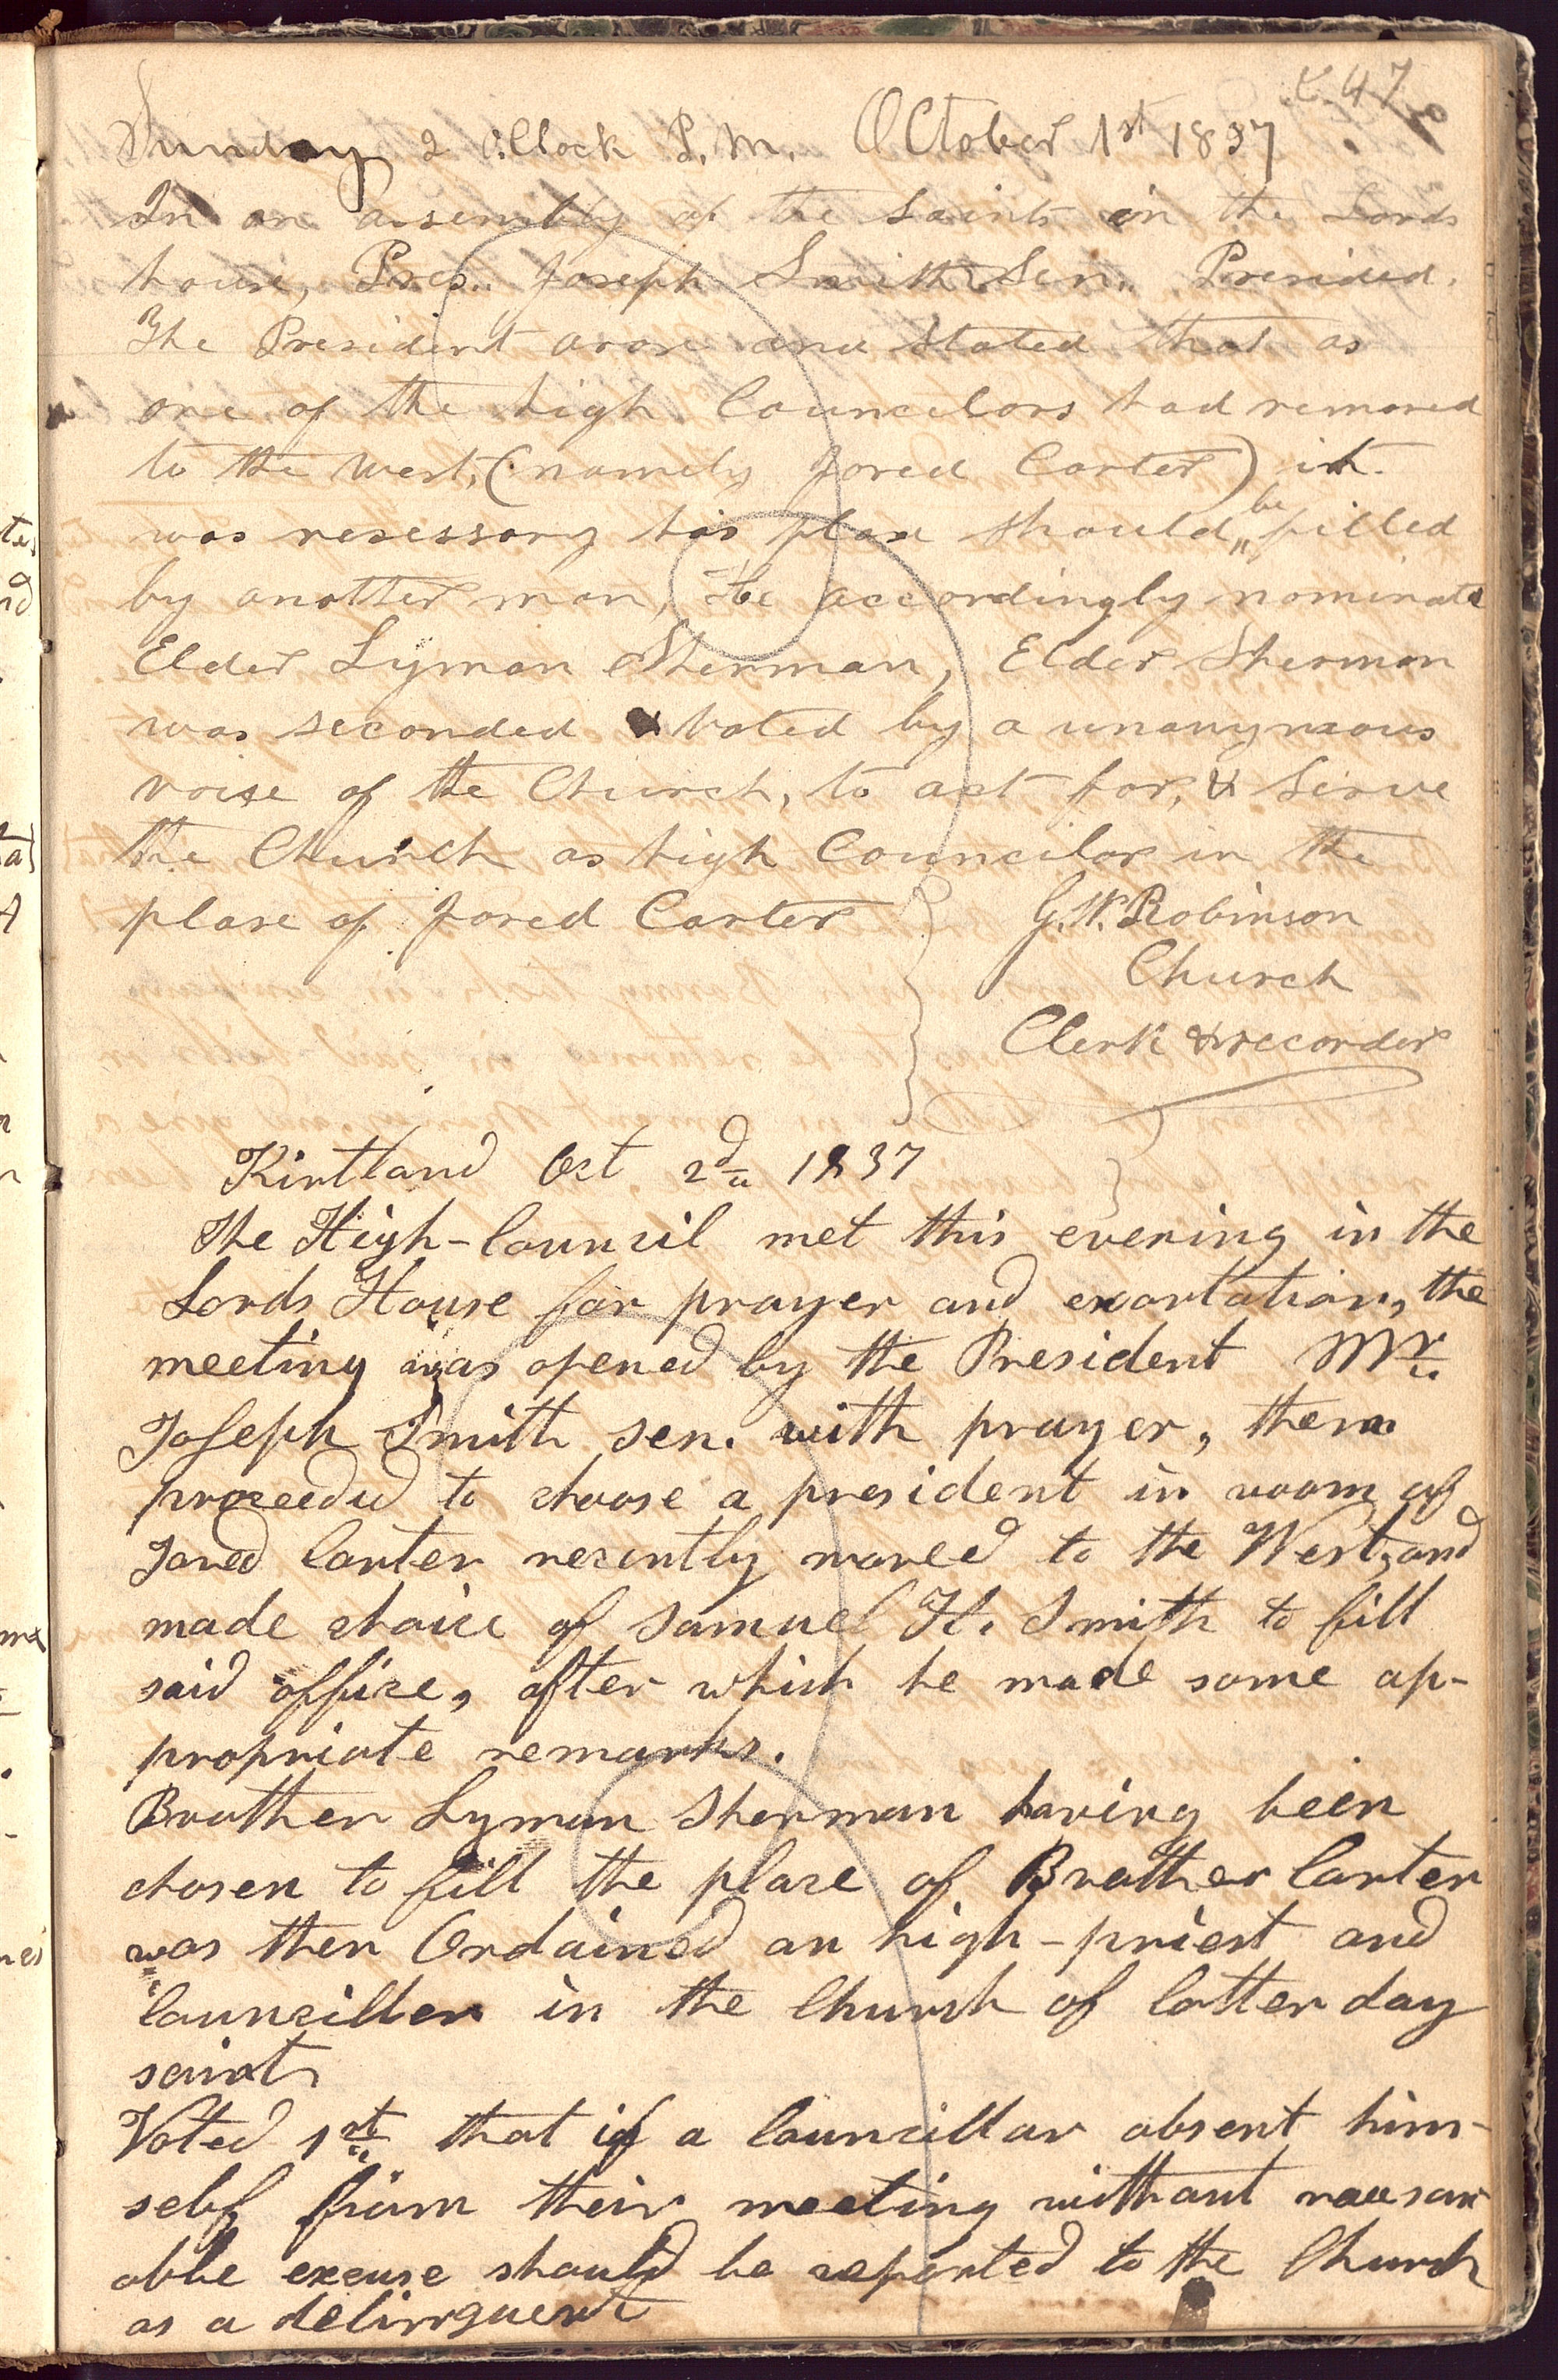 247
Sunday 2 o.Clock P.M. October 1st 1837
In an assembly of the Saints in the Lords
house, Pres. Joseph Smith Sen. Presided.
The President arose and stated that as
one of the high Councilors had removed
to the west, (namely Jared Carter) it
was nesessary his plase should be filled
by another man, He accordingly nominate
Elder Lyman Sherman, Elder Sherman
was seconded & voted by a unanymous
voise of the Church, to act for, & Serve
the Church as high Councilor in the
plase of Jared Carter
G. W. Robinson
Church
Clerk & recorder
Kirtland Oct 2d 1837
The High-Council met this evening in the
Lords House for prayer and exortation, the
meeting was opened by the President Mr
Joseph Smith sen. with prayer, then
proceeded to choose a president in room of
Jared Carter recently moved to the West, and
made choice of Samuel H. Smith to fill
said office, after which he made some ap-
propriate remarks.
Brother Lyman Sherman having been
chosen to fill the place of Brother Carter
was then Ordained an high-priest and
Counciller in the Church of latter day
saints
Voted 1st that if a Councillor absent him-
self from their meeting without reason
able excuse should be reported to the Church
as a delinquent